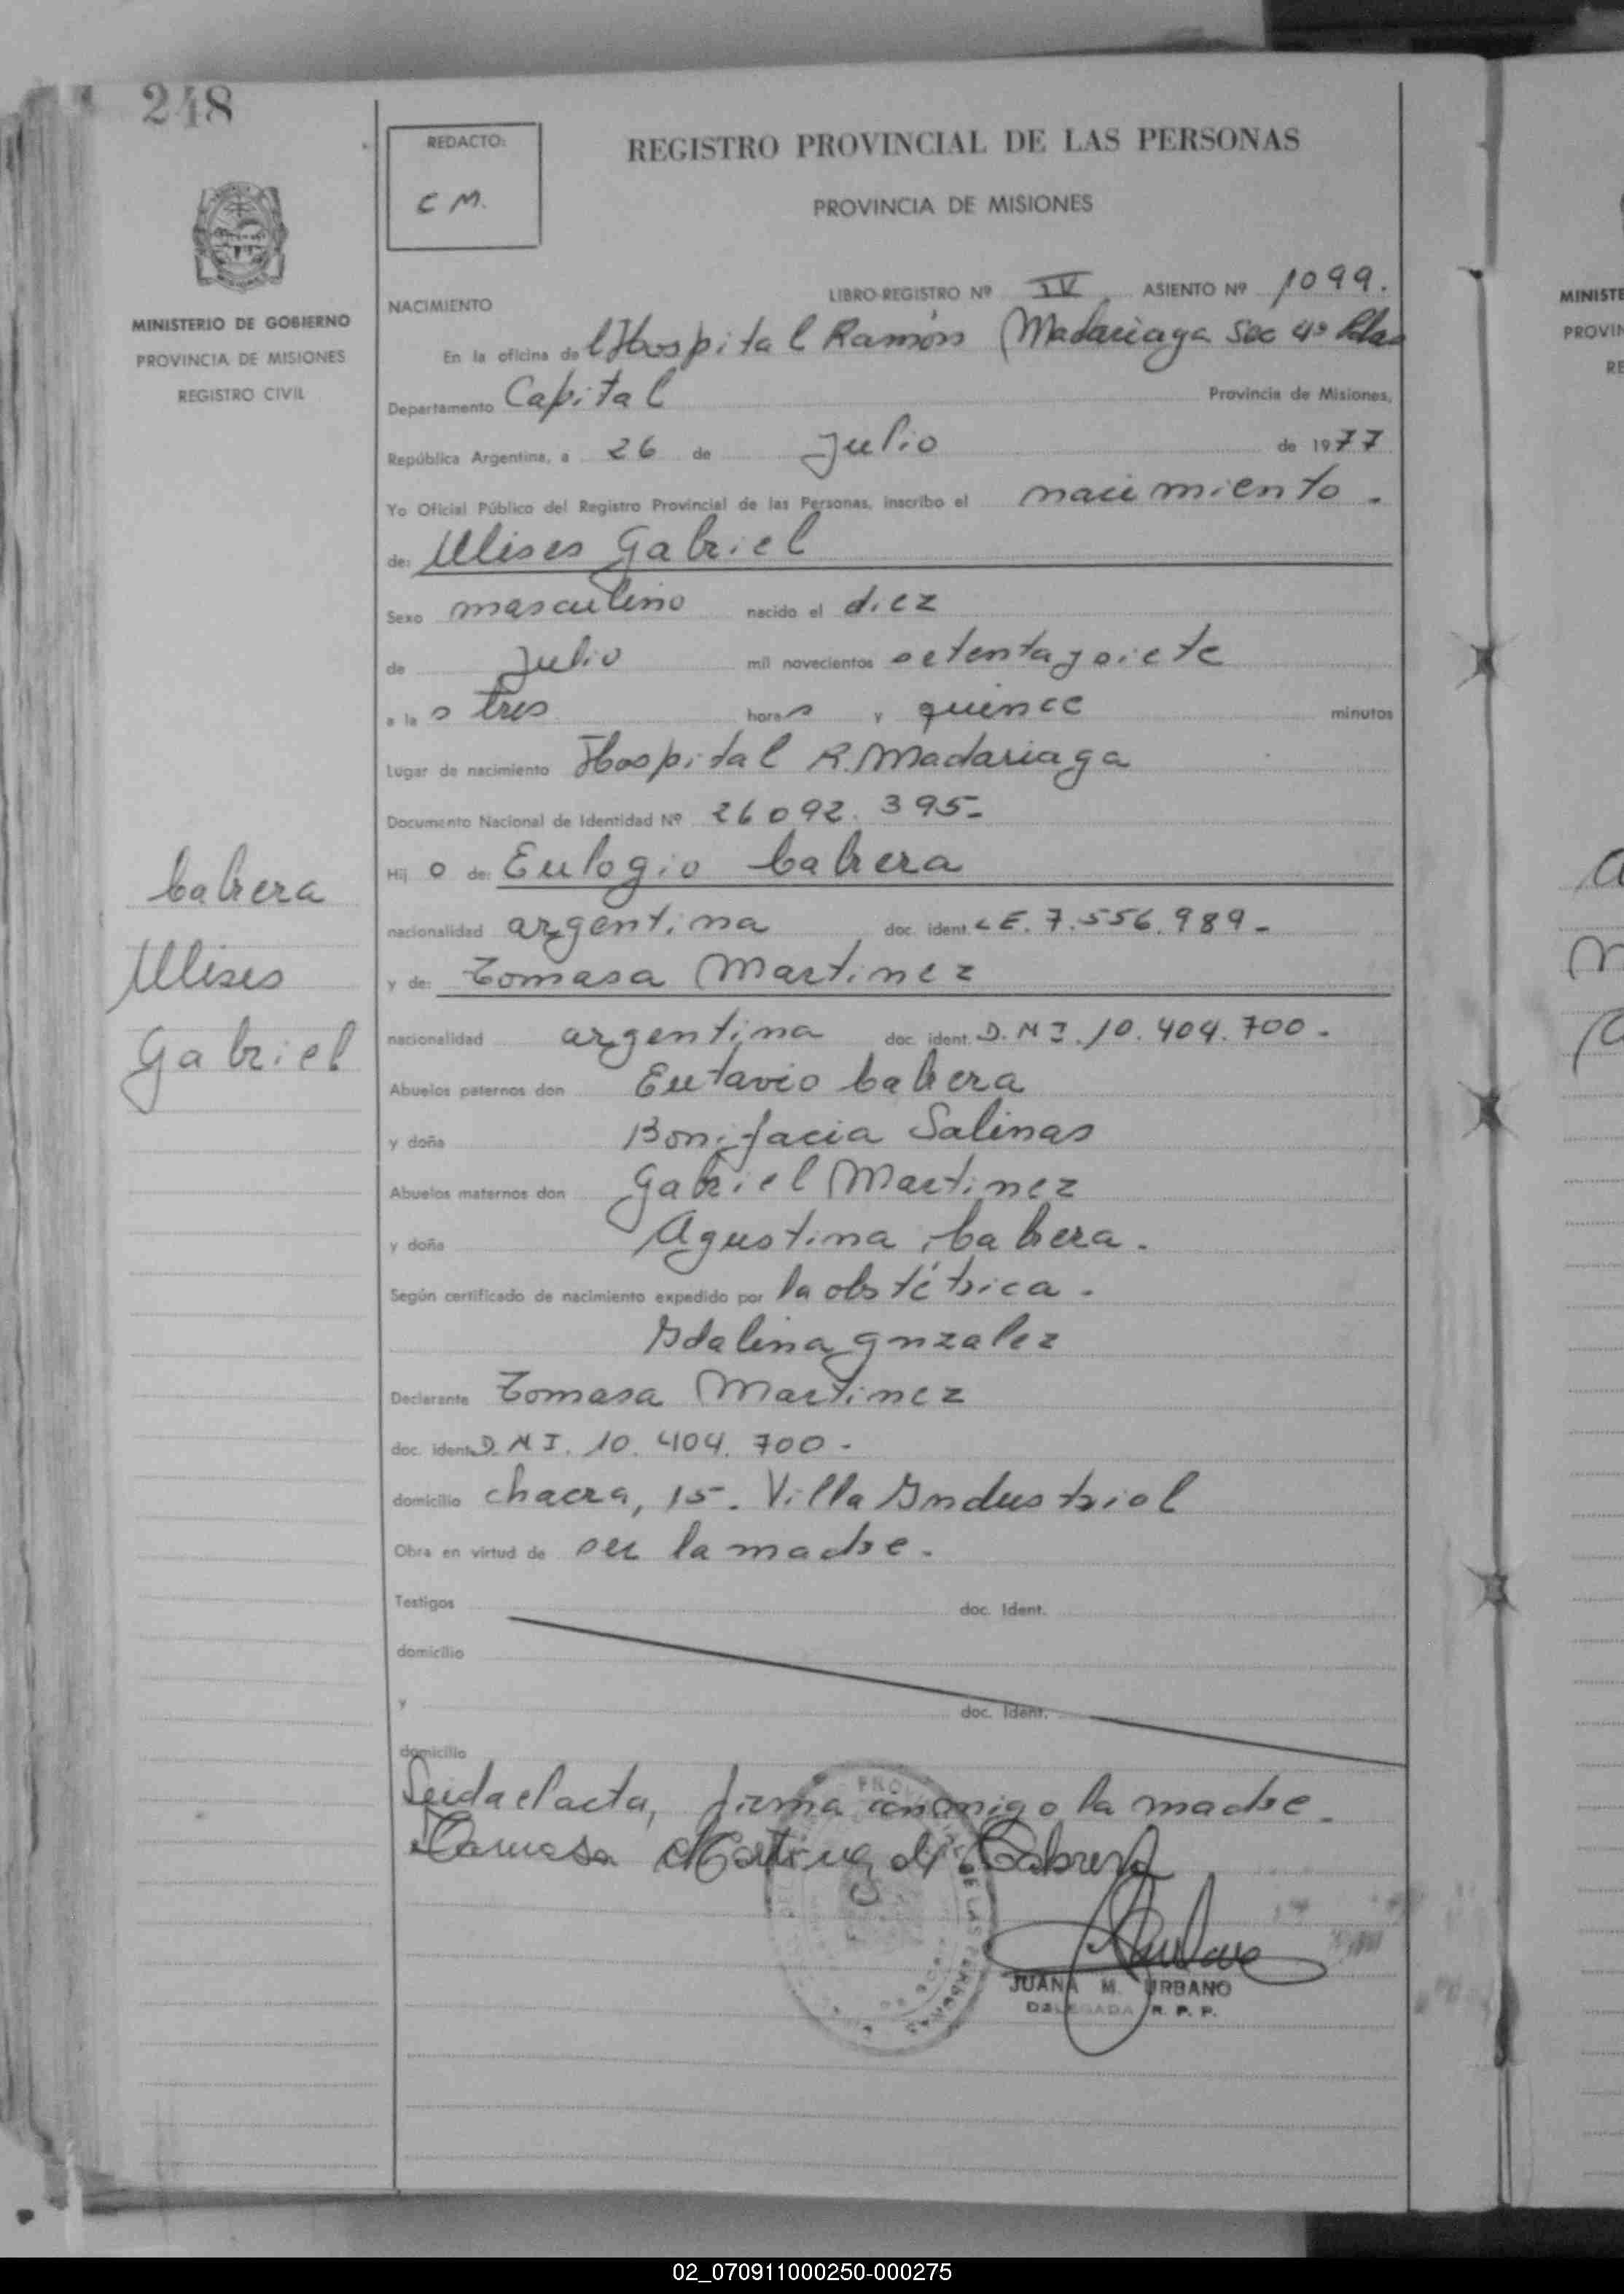 248
REDACTO:
C M.
REGISTRO PROVINCIAL DE LAS PERSONAS
PROVINCIA DE MISIONES
MINISTERIO DE GOBIERNO
PROVINCIA DE MISIONES
REGISTRO CIVIL
NACIMIENTO
LIBRO-REGISTRO Nº IV ASIENTO Nº 1099.
En la oficina de l Hospital Ramón Madariaga Sec 4ª
Departamento Capital Provincia de Misiones,
República Argentina, a 26 de Julio de 1977
Yo Oficial Público del Registro Provincial de las Personas, inscribo el nacimiento.
de: Ulises Gabriel
Sexo masculino nacido el diez
de Julio mil novecientos setentaysiete
a la s tres hora s y quince minutos
Lugar de nacimiento Hospital R. Madariaga
Documento Nacional de Identidad Nº 26 092. 395-
Hij o de: Eulogio Cabrera
nacionalidad argentina doc. ident. L E. 7.556.989-
y de: Tomasa Martinez
nacionalidad argentina doc. ident. D.N I. 10.404.700-
Abuelos paternos don Eutavio Cabrera
y doña Bonifacia Salinas
Abuelos maternos don Gabriel Martinez
y doña Agustina Cabrera.
Según certificado de nacimiento expedido por la obstétrica.
Idalina gnzalez
Declarante Tomasa Martinez
doc. ident. D.N I. 10. 404. 700-
domicilio chacra, 15. Villa Industrial
Obra en virtud de ser la madre.
Testigos doc. Ident.
domicilio
y doc. Ident.
domicilio
Leida el acta, firma conmigo la madre.
Tamasa Martinez de Cabrera
JUANA M. URBANO
DELEGADA R. P. P.
Cabrera
Ulises
Gabriel
MINISTE
PROVIN
RE
02_070911000250-000275